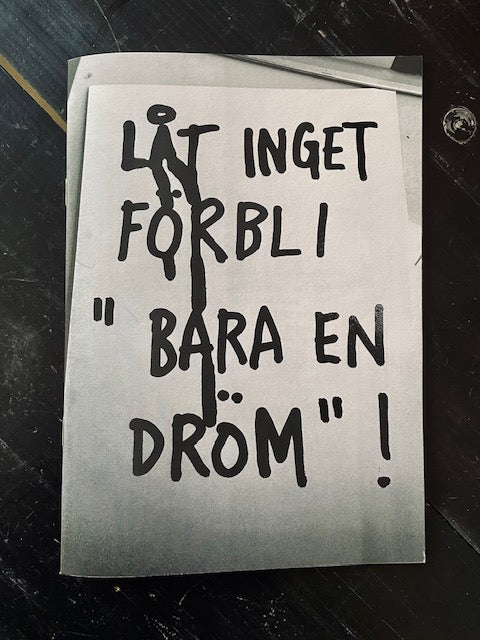 LÅT INGET
FÖRBLI
"BARA EN
DRÖM"!